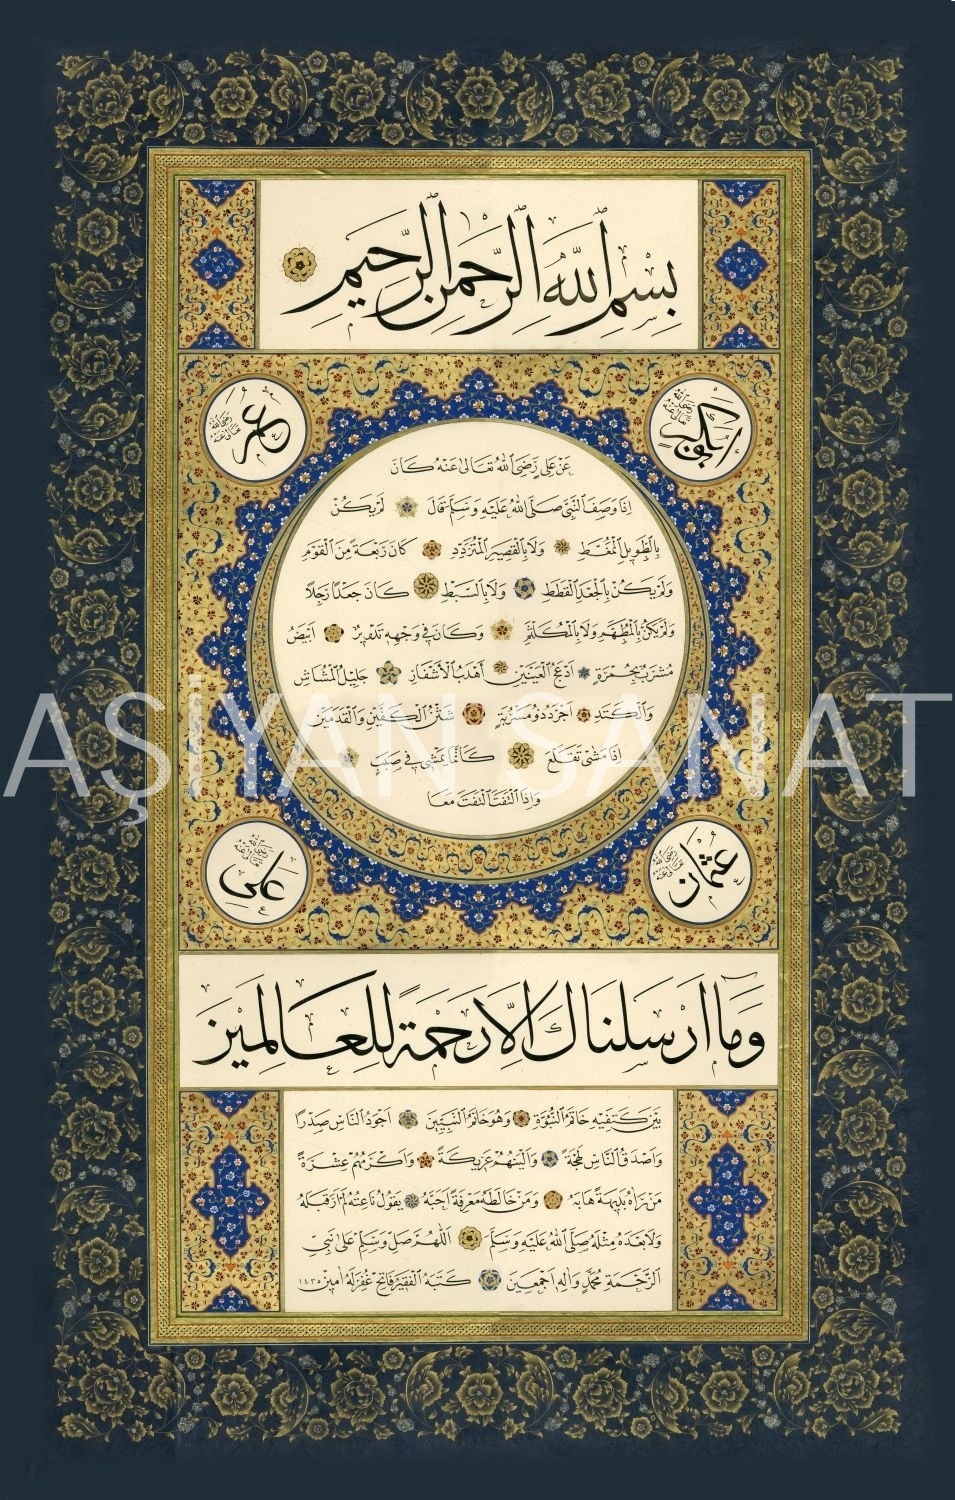 بِسْمِ اللهِ الرَّحْمٰنِ الرَّحِيمِ
ابوبكر رضى الله تعالى عنه
عمر رضى الله تعالى عنه
عَنْ عَلِىٍّ رَضِىَ اللهُ تَعَالٰى عَنْهُ كَانَ
اِذَا وَصَفَ النَّبِىَّ صَلَّى اللهُ عَلَيْهِ وَسَلَّمَ قَالَ لَمْ يَكُنْ
بِالطَّوِيلِ الْمُمَّغِطِ وَلَا بِالْقَصِيرِ الْمُتَرَدِّدِ كَانَ رَبْعَةً مِنَ الْقَوْمِ
وَلَمْ يَكُنْ بِالْجَعْدِ الْقَطَطِ وَلَا بِالسَّبْطِ كَانَ جَعْدًا رَجِلًا
وَلَمْ يَكُنْ بِالْمُطَهَّمِ وَلَا بِالْمُكَلْثَمِ وَكَانَ فِى وَجْهِهِ تَدْوِيرٌ اَبْيَضُ
مُشْرَبٌ بِحُمْرَةٍ اَدْعَجُ الْعَيْنَيْنِ اَهْدَبُ الْاَشْفَارِ جَلِيلُ الْمُشَاشِ
وَالْكَتَدِ اَجْرَدُ ذُو مَسْرُبَةٍ شَثْنُ الْكَفَّيْنِ وَالْقَدَمَيْنِ
اِذَا مَشٰى تَقَلَّعَ كَاَنَّمَا يَمْشِى فِى صَبَبٍ
وَاِذَا الْتَفَتَ الْتَفَتَ مَعًا
عثمان رضى الله تعالى عنه
على رضى الله تعالى عنه
وَمَا اَرْسَلْنَاكَ اِلَّا رَحْمَةً لِلْعَالَمِينَ
بَيْنَ كَتِفَيْهِ خَاتَمُ النُّبُوَّةِ وَهُوَ خَاتَمُ النَّبِيِّينَ اَجْوَدُ النَّاسِ صَدْرًا
وَاَصْدَقُ النَّاسِ لَهْجَةً وَاَلْيَنُهُمْ عَرِيكَةً وَاَكْرَمُهُمْ عِشْرَةً
مَنْ رَاٰهُ بَدِيهَةً هَابَهُ وَمَنْ خَالَطَهُ مَعْرِفَةً اَحَبَّهُ يَقُولُ نَاعِتُهُ لَمْ اَرَ قَبْلَهُ
وَلَا بَعْدَهُ مِثْلَهُ صَلَّى اللهُ عَلَيْهِ وَسَلَّمَ اَللّٰهُمَّ صَلِّ وَسَلِّمْ عَلٰى نَبِىِّ
الرَّحْمَةِ مُحَمَّدٍ وَاٰلِهِ اَجْمَعِينَ كَتَبَهُ الْفَقِيرُ فَاتِح غُفِرَ لَهُ اٰمِين ١٤٣٥
AŞİYAN SANAT